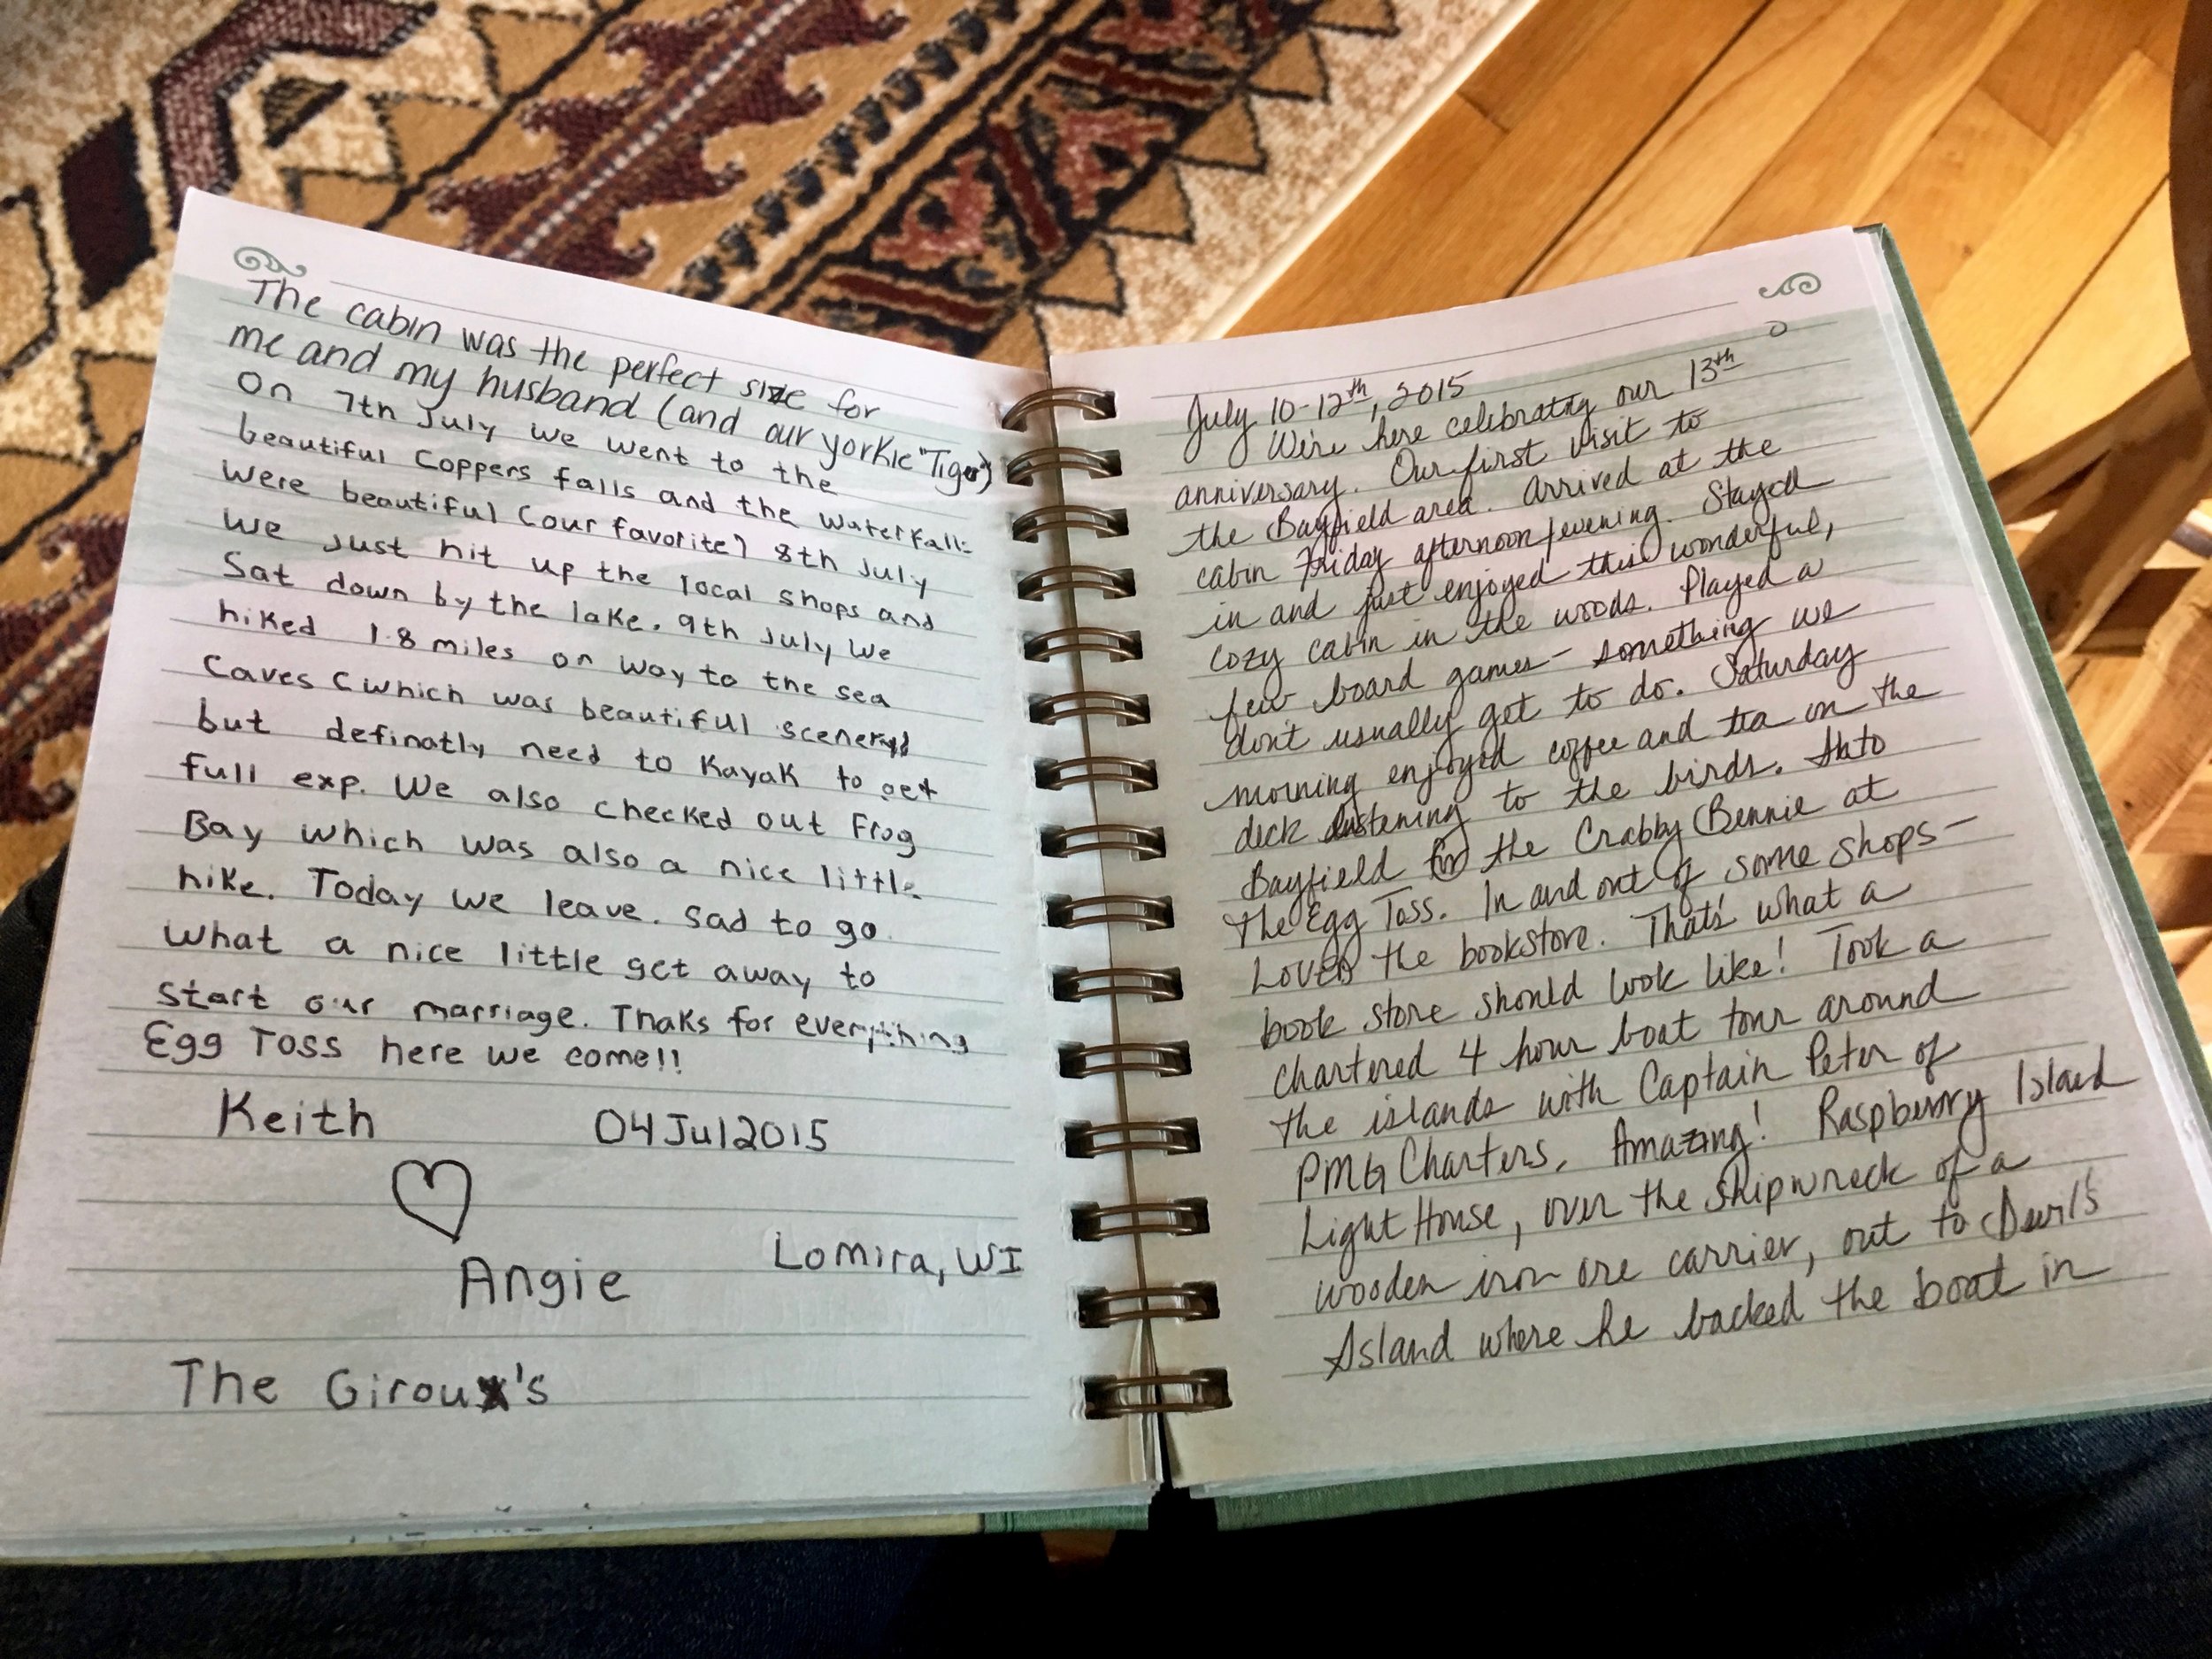 The cabin was the perfect size for
me and my husband (and our yorkie "Tiger")
On 7th July we went to the
beautiful Coppers falls and the waterfalls
were beautiful (our favorite) 8th July
we just hit up the local shops and
Sat down by the lake. 9th July we
hiked 1.8 miles on way to the sea
Caves (which was beautiful scenery)
but definatly need to Kayak to get
full exp. We also checked out Frog
Bay which was also a nice little
hike. Today we leave. Sad to go
What a nice little get away to
Start our marriage. Thaks for everything
Egg Toss here we come!!
Keith 04Jul2015
Angie Lomira, WI
The Giroux's
July 10-12th, 2015
We're here celebrating our 13th
anniversary. Our first visit to
the Bayfield area. Arrived at the
cabin Friday afternoon/evening. Stayed
in and just enjoyed this wonderful,
cozy cabin in the woods. Played a
few board games - something we
don't usually get to do. Saturday
morning enjoyed coffee and tea on the
deck listening to the birds. to
Bayfield for the Crabby Bennie at
the Egg Toss. In and out of some shops -
LOVED the bookstore. That's what a
book store should look like! Took a
chartered 4 hour boat tour around
the islands with Captain Peter of
PMG Charters. Amazing! Raspberry Island
Light House, over the shipwreck of a
wooden iron ore carrier, out to Devil's
Island where he backed the boat in